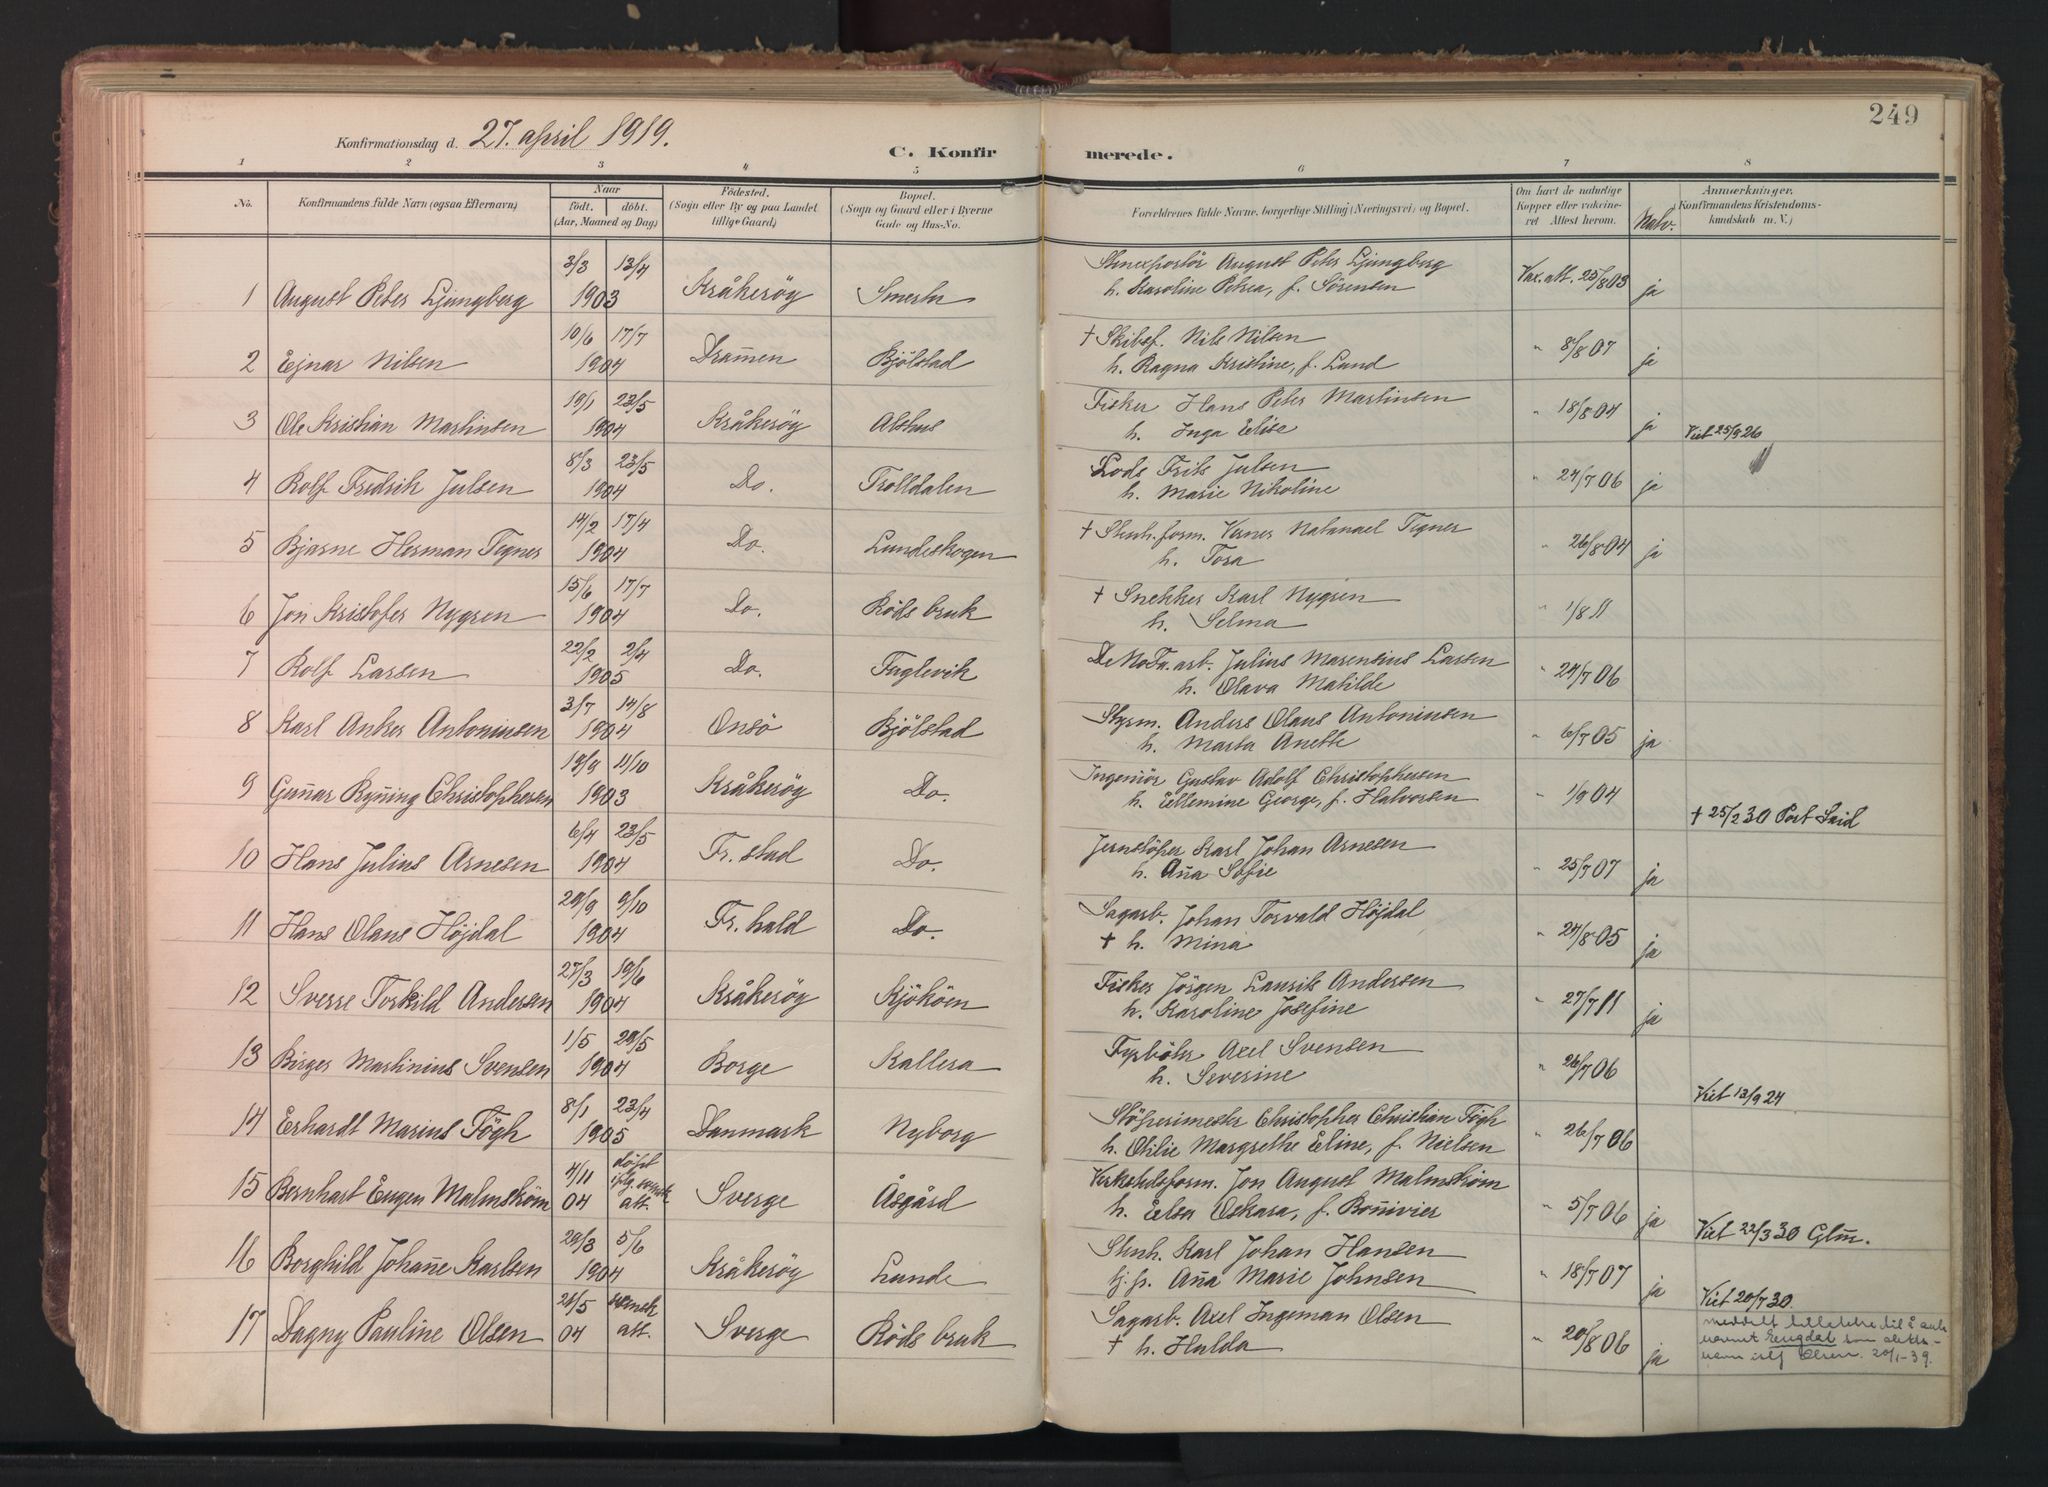 249
Konfirmationsdag d. 27. april 1919.
C. Konfirmerede.
1 2 3 4 5 6 7 8
No. Konfirmandens fulde Navn (ogsaa Efternavn) Naar födt. döbt. (Aar, Maaned og Dag) Födested. (Sogn eller By og paa Landet tillige Gaard) Bopæl. (Sogn og Gaard eller i Byerne Gade og Hus-No. Forældrenes fulde Navne, borgerlige Stilling (Næringsvei) og Bopæl. Om havt de naturlige Kopper eller vakcineret Attest herom. Natv. Anmærkninger. (Konfirmandens Kristendomskundskab m. V.)
1 August Peter Ljungberg 3/3 13/4 1903 Kråkeröy Smertu Stenexportör August Peter Ljungberg
h. Karoline Petrea, f. Sörensen Vax. att. 25/8 03 ja
2 Ejnar Nilsen 10/6 17/7 1904 Dram̄en Bjölstad † Skibsf. Nils Nilsen
h. Ragna Kristine, f. Lund " 8/8 07 ja
3 Ole Kristian Martinsen 19/1 23/5 1904 Kråkeröy Alshus Fisker Hans Peter Martinsen
h. Inga Elise " 18/8 04 ja Viet 25/9 26
4 Rolf Fredrik Julsen 8/3 23/5 1904 Do. Trolldalen Lods Frits Julsen
h. Marie Nikoline " 24/7 06 ja
5 Bjarne Herman Tegner 14/2 17/4 1904 Do. Lundeskogen † Stenh. form. Verner Natanael Tegner
h. Tora " 26/8 04 ja
6 Jon Kristofer Nygren 15/6 17/7 1904 Do. Röds bruk † Snekker Karl Nygren
h. Selma " 1/8 11
7 Rolf Larsen 22/2 2/4 1905 Do. Fuglevik DeNoFa. arb. Julius Marensius Larsen
h. Olava Matilde " 24/7 06
8 Karl Anker Antoninsen 3/7 14/8 1904 Onsö Bjölstad Styrm. Anders Olaus Antoninsen
h. Marta Anette " 6/7 05 ja
9 Gun̄ar Ryn̄ing Christophersen 19/9 11/10 1903 Kråkeröy Do. Ingeniör Gustav Adolf Christophersen
h. Ellemine George, f. Halvorsen " 1/9 04 † 25/2 30 Port Said
10 Hans Julius Arnesen 6/4 23/5 1904 Fr. stad Do. Jernstöper Karl Johan Arnesen
h. An̄a Sofie " 25/7 07 ja
11 Hans Olaus Höjdal 29/9 9/10 1904 Fr. hald Do. Sagarb. Johan Torvald Höjdal
† h. Mina " 24/8 05 ja
12 Sverre Torkild Andersen 27/3 19/6 1904 Kråkeröy Kjököen Fisker Jörgen Laurits Andersen
h. Karoline Josefine " 27/7 11 ja
13 Birger Martinius Svensen 1/5 29/5 1904 Borge Kallera Fyrböter Axel Svensen
h. Severine " 26/7 06 Viet 13/9 24
14 Erhardt Marius Fögh 8/1 23/4 1905 Danmark Nyborg Stöperimester Christopher Christian Fögh
h. Otilie Margrethe Eline, f. Nielsen " 26/7 06
15 Bernhart Eugen Malmström 4/11 04 döpt iflg. svensk att. Sverge Åsgård Verkstedsform. Jon August Malmström
h. Elsa Oskara, f. Bon̄ivier " 5/7 06 ja Viet 22/3 30 Glm̄.
16 Borghild Johan̄e Karlsen 29/3 5/6 1904 Kråkeröy Lunde Stenh. Karl Johan Hansen
fj. fr. An̄a Marie Johnsen " 18/7 07 ja Viet 20/7 30.
17 Dagny Pauline Olsen 24/5 04 svensk att. Sverge Röds bruk Sagarb. Axel Ingeman Olsen
† h. Hulda " 20/8 06 ja meddelt tillatelse til å anta
navnet Engdal som slekts-
navn istf Olsen. 20/1-39.